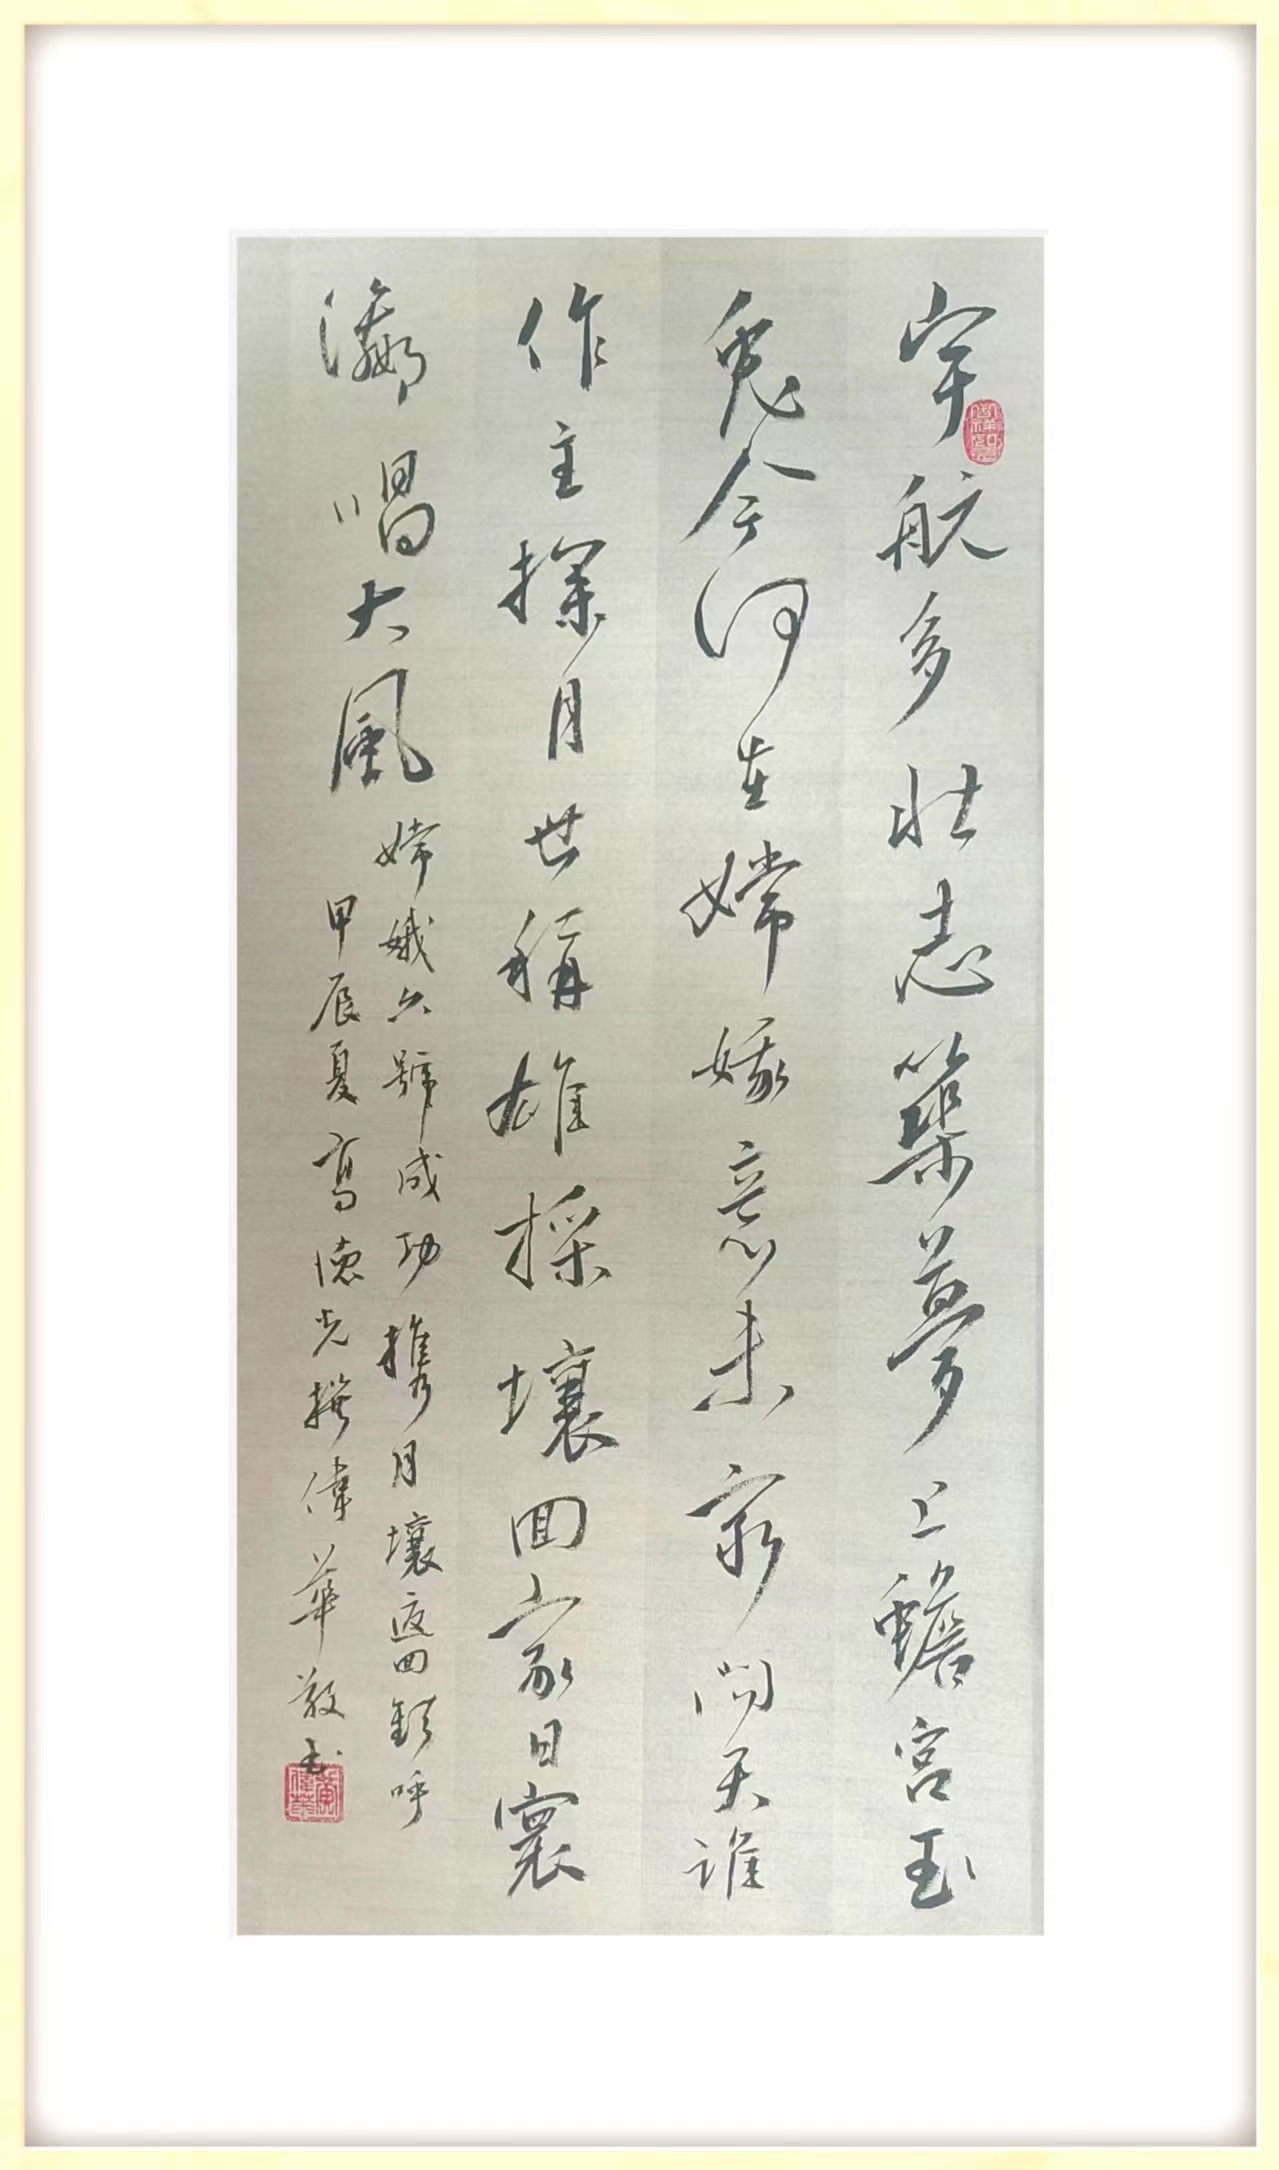 宇航多壯志築夢上蟾宮玉
兔今何在嫦娥意未窮問天誰
作主探月世稱雄採壤回家日寰
瀛唱大風
嫦娥六號成功攜月壤返回歡呼
甲辰夏高德光撰偉華敬書